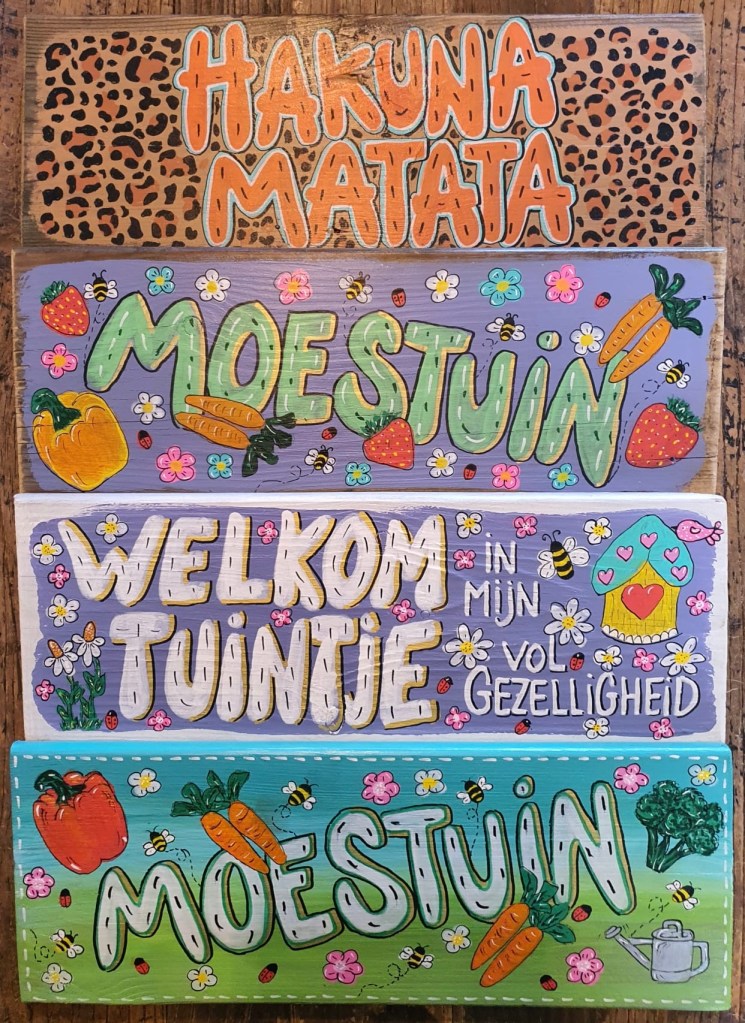 HAKUNA
MATATA
MOESTUIN
WELKOM
TUINTJE
IN
MIJN
VOL
GEZELLIGHEID
MOESTUIN